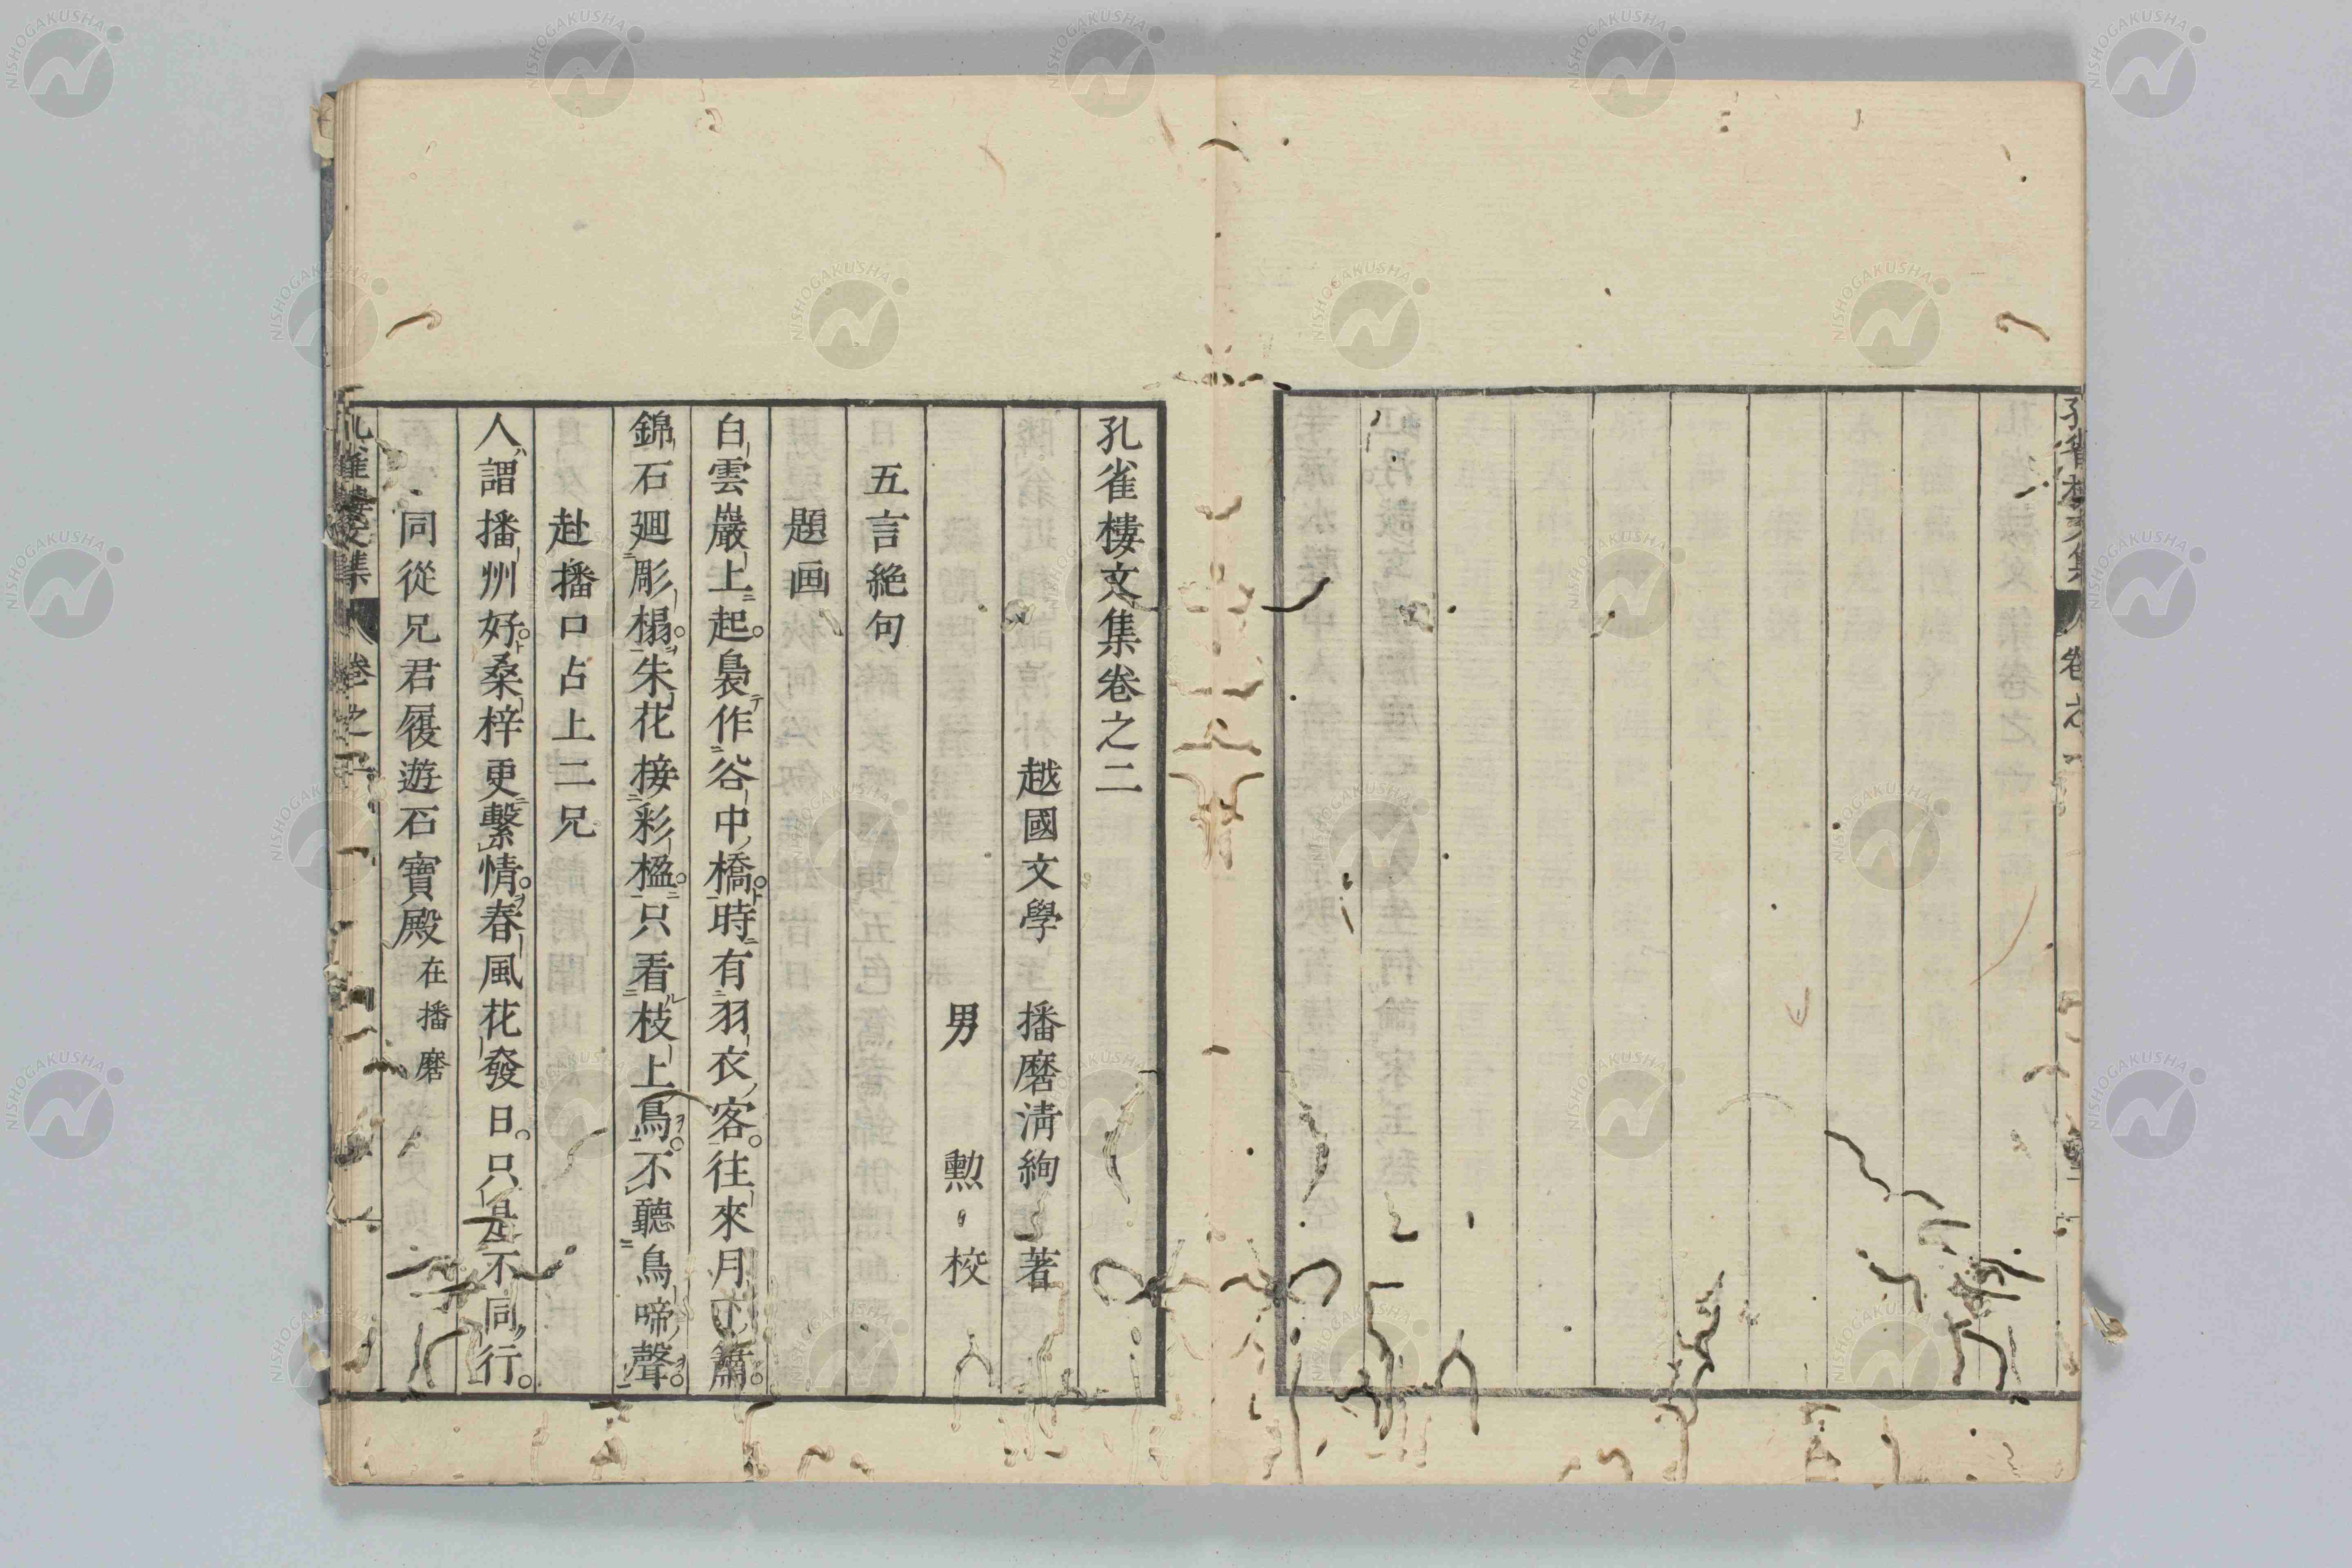 孔雀樓文集卷之二
越國文學 播磨清絢 著
男 勲 校
五言絶句
題画
白雲巖上起。裊作谷中橋。時有羽衣客。往來月下簫。
錦石廻彫榻。朱花接彩楹。只看枝上鳥。不聽鳥啼聲。
赴播口占上二兄
人謂播州好。桑梓更繫情。春風花發日。只是不同行。
同從兄君履遊石寶殿 在播磨
孔雀樓文集 卷之二
NISHOGAKUSHA